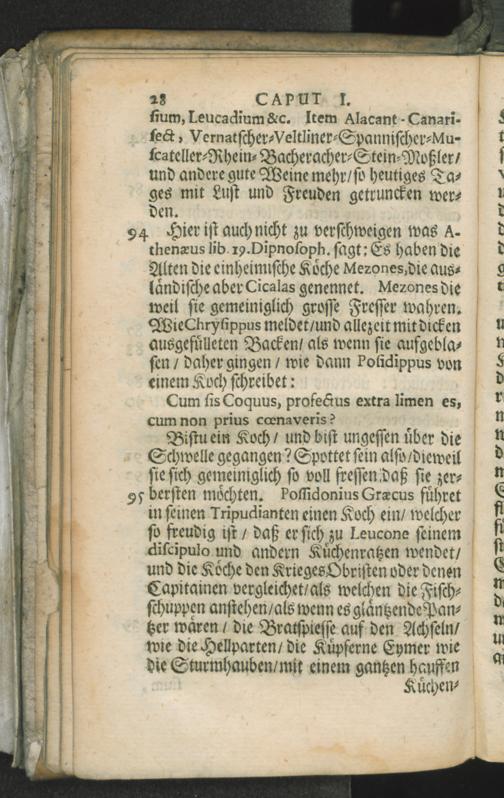 28 CAPUT I.
sium, Leucadium &c. Item Alacant-Canari-
sect, Vernatscher-Veltliner-Spannischer-Mu-
scateller-Rhein-Bacheracher-Stein-Moßler/
und andere gute Weine mehr/ so heutiges Ta-
ges mit Lust und Freuden getruncken wer-
den.
94 Hier ist auch nicht zu verschweigen was A-
thenæus lib. 19. Dipnosoph. sagt: Es haben die
Alten die einheimische Köche Mezones, die aus-
ländische aber Cicalas genennet. Mezones die
weil sie gemeiniglich grosse Fresser wahren.
Wie Chrysippus meldet/ und allezeit mit dicken
ausgefülleten Backen/ als wenn sie aufgebla-
sen / daher gingen / wie dann Posidippus von
einem Koch schreibet:
Cum sis Coquus, profectus extra limen es,
cum non prius cœnaveris?
Bistu ein Koch / und bist ungessen über die
Schwelle gegangen? Spottet sein also / dieweil
sie sich gemeiniglich so voll fressen, daß sie zer-
95 bersten möchten. Possidonius Græcus führet
in seinen Tripudianten einen Koch ein/ welcher
so freudig ist / daß er sich zu Leucone seinem
discipulo und andern Küchenratzen wendet/
und die Köche den Krieges Obristen oder denen
Capitainen vergleichet/ als welchen die Fisch-
schuppen anstehen/ als wenn es gläntzende Pan-
tzer wären / die Bratspiesse auf den Achseln/
wie die Hellparten/ die Küpferne Eymer wie
die Sturmhauben/ mit einem gantzen hauffen
Küchen-